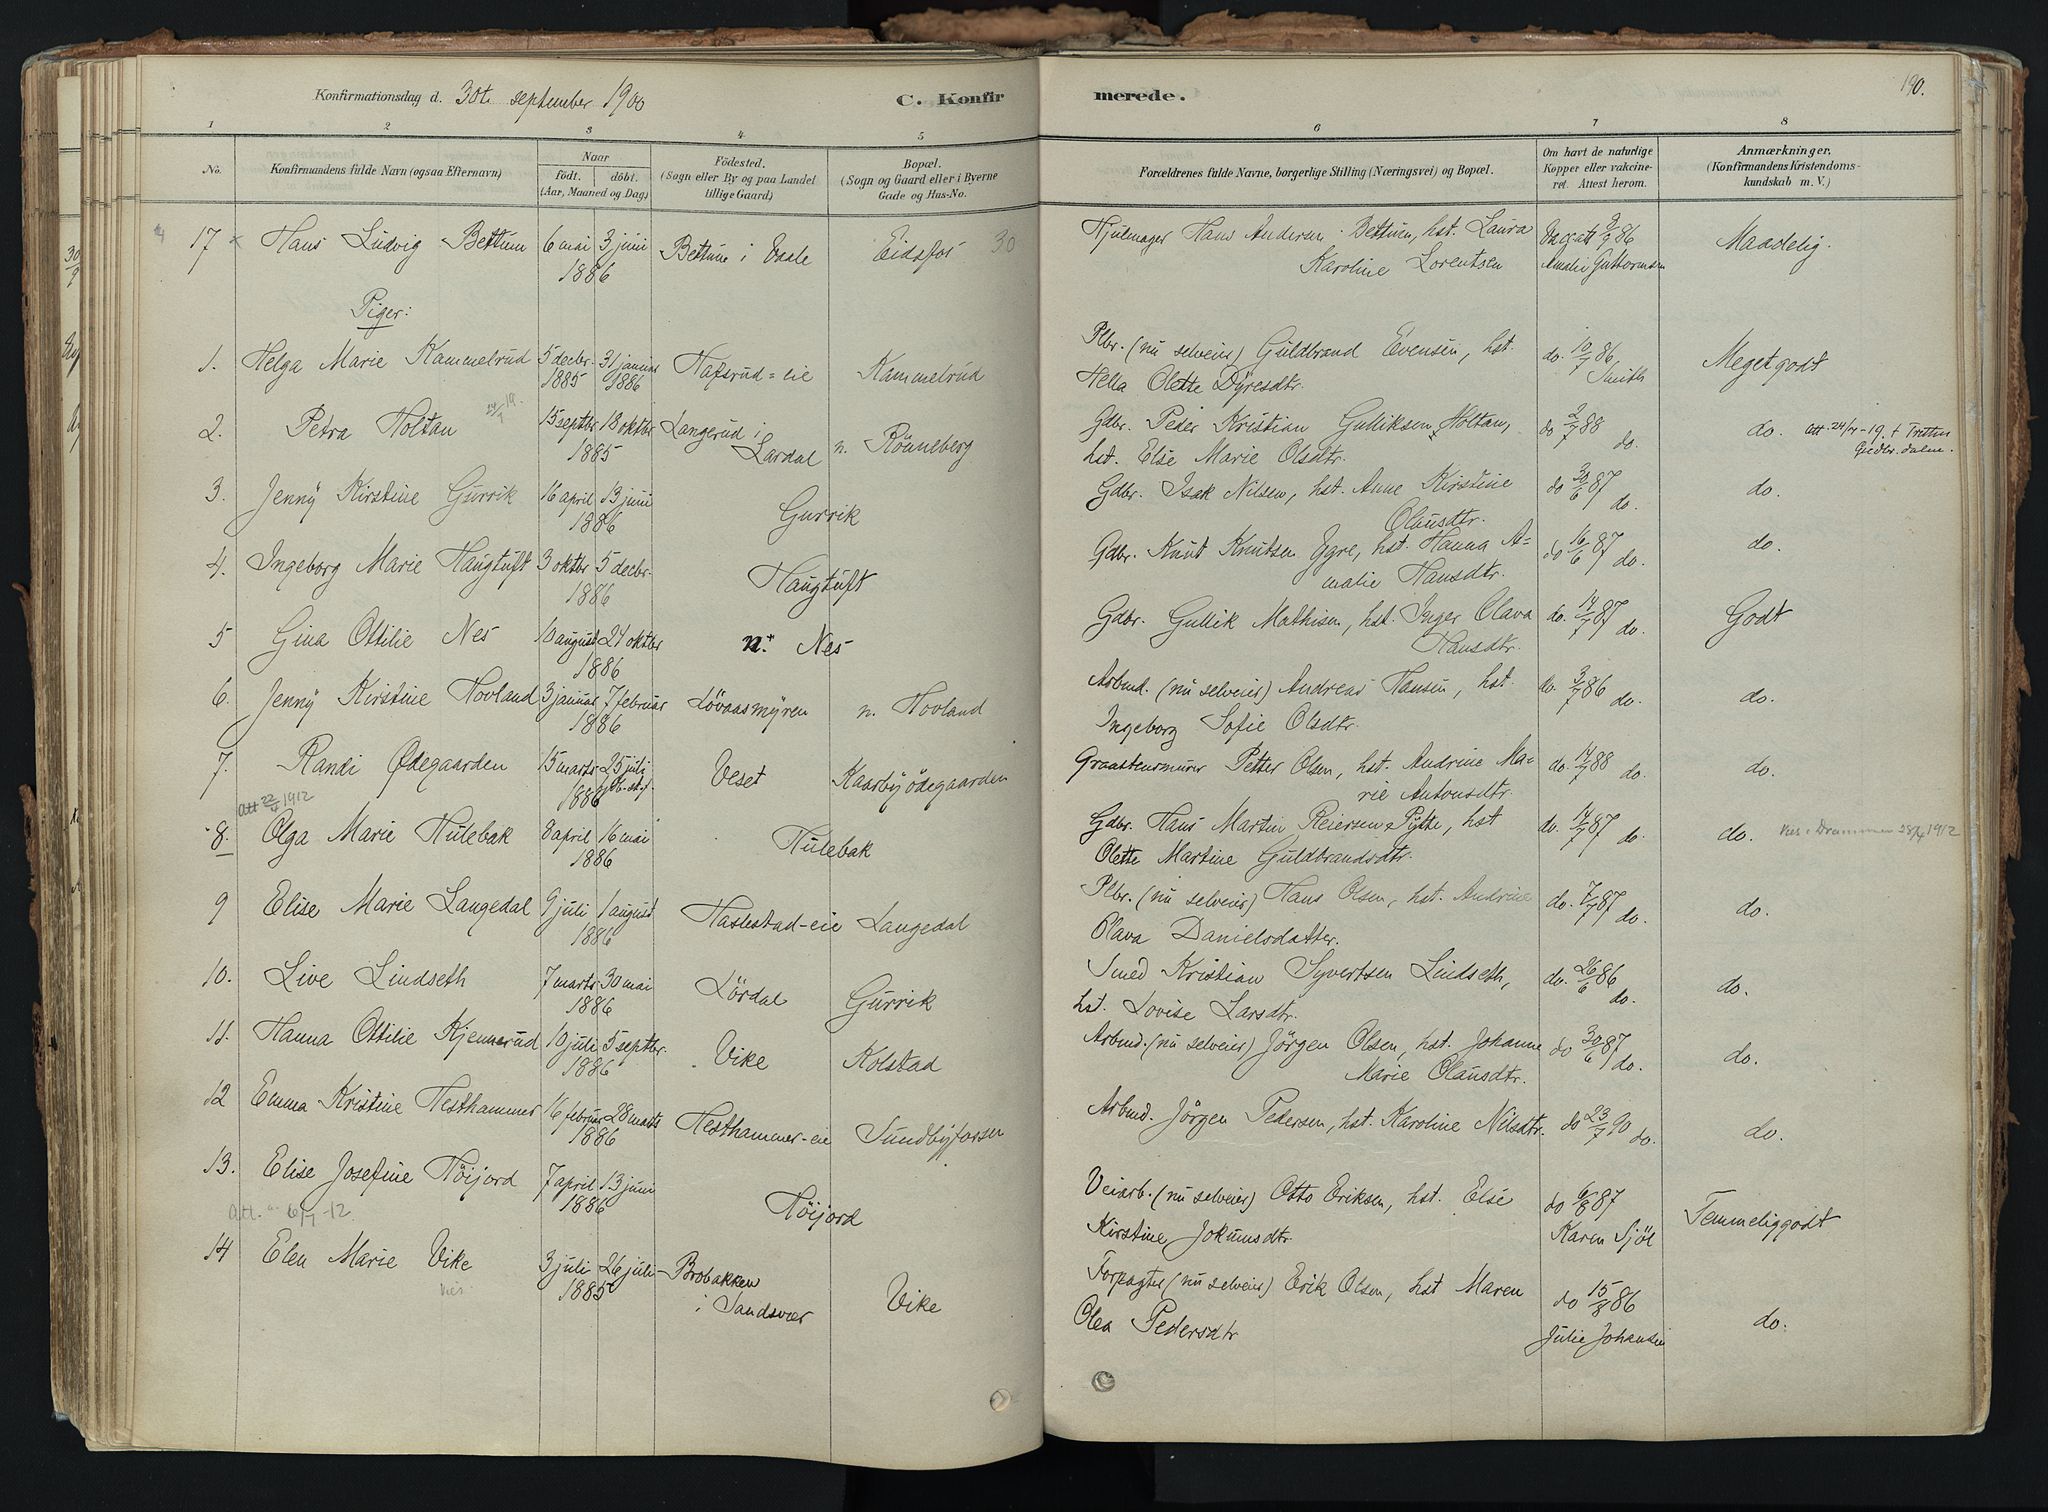 Konfirmationsdag d. 30te september 1900
C. Konfirmerede.
190.
1 2 3 4 5 6 7 8
No.
Konfirmandens fulde Navn (ogsaa Efternavn)
Naar
født. døbt.
(Aar, Maaned og Dag)
Födested.
(Sogn eller By og paa Landet
tillige Gaard)
Bopæl.
(Sogn og Gaard eller i Byerne
Gade og Hus-No.
Forældrenes fulde Navne, borgerlige Stilling (Næringsvei) og Bopæl.
Om havt de naturlige
Kopper eller vakcine-
ret. Attest herom.
Anmærkninger.
(Konfirmandens Kristendoms-
kundskab m. V.)
17 Hans Ludvig Bettum 6 mai 3 juni Bettum i Vaale Eidsfos 30 Hjulmager Hans Andersen Bettum, hst. Laura Vaccatt 9/9 86 Maadelig.
1886 Karoline Lorentsen Amalie Guttormsen
Piger:
1. Helga Marie Kammelrud 5 decbr. 31 januar Hafsrud=eie Kammelrud Plbr. (nu selveier) Guldbrand Evensen, hst. do. 10/7 86 Meget godt
1885 1886 Helia Olette Dyresdtr. Smith
2. Petra Holtan 15 septbr 18 oktbr Langerud i n. Rönneberg Gdbr. Peder Kristian Gulliksen Holtan, do 2/7 88 do. Att 24/4-19. t Tretten
1885 Lardal hst. Else Marie Olsdtr. do. Gudbr.dalen.
3. Jenny Kirstine Gurrik 16 april 13 juni Gurrik Gdbr. Isak Nilsen, hst. Anne Kirstine do 30/6 87 do.
1886 Olausdtr. do.
4. Ingeborg Marie Haugtuft 3 oktbr 5 decbr. Haugtuft Gdbr. Knut Knutsen Ygre, hst. Hanna A- do 16/6 87 do. do.
1886 malie Hansdtr.
5 Gina Ottilie Nes 10 august 24 oktbr n. Nes Gdbr. Gullik Mathisen, hst. Inger Olava do. 14/7 87 do. Godt
1886 Hansdtr.
6. Jenny Kirstine Hovland 3 januar 7 februar Lövaasmyren n. Hovland Arbmd. (nu selveier) Andreas Hansen, hst. do. 3/7 86 do. do.
1886 Ingeborg Sofie Olsdtr.
7. Randi Ødegaarden 15 marts 25 juli Veset Kaarby ödegaarden Graastensmurer Petter Olsen, hst. Andrine Ma- do. 14/7 88 do. do.
1886 rie Antonsdtr.
Att 22/4 1912
8. Olga Marie Hulebak 8 april 16 mai Hulebak Gdbr. Hans Martin Reiersen Pytte, hst do. 14/7 87 do. do. Drammen 28/4 1912
1886 Olette Martine Guldbrandsdtr.
9 Elise Marie Langedal 9 juli 1 august Haslestad-eie Langedal Plbr. (nu selveier) Hans Olsen, hst. Andrine do. 7/7 87 do. do.
1886 Olava Danielsdatter.
10. Live Lindseth 7 marts 30 mai Lördal Gurrik Smed Kristian Syvertsen Lindseth, do. 26/6 86 do. do.
1886 hst. Lovise Larsdtr.
11. Hanna Ottilie Kjennerud 10 juli 5 septbr. Vike Kolstad Arbmd. (nu selveier) Jörgen Olsen, hst. Johanne do 30/6 87 do. do.
1886 Marie Olausdtr.
12 Emma Kristine Hesthammer 16 februar 28 marts Hesthammer-eie Sundbyfossen Arbmd. Jörgen Pedersen, hst. Karoline Nilsdtr. do 23/7 90 do. do.
1886
13. Elise Josefine Höijord 7 april 13 juni Höijord Veiarb. (nu selveier) Otto Eriksen, hst. Else do 6/8 87 Temmelig godt
1886 Kirstine Jokumsdtr. Karen Sjöl
Att. 6/7-12
14 Elen Marie Vike 3 juli 26 juli Brobakken Vike Forpagter (nu selveier) Erik Olsen, hst Maren do 15/8 86 do.
1885 i Sandsvær Olea Pedersdtr Julie Johansen